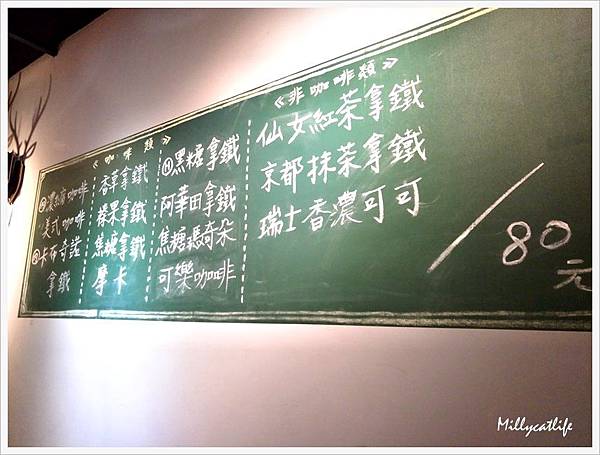 《咖啡類》
濃縮咖啡
美式咖啡
卡布奇諾
拿鐵
香草拿鐵
榛果拿鐵
焦糖拿鐵
摩卡
Ⓗ黑糖拿鐵
阿華田拿鐵
焦糖瑪奇朵
可樂咖啡
《非咖啡類》
仙女紅茶拿鐵
京都抹茶拿鐵
瑞士香濃可可
/80元
Millycatlife